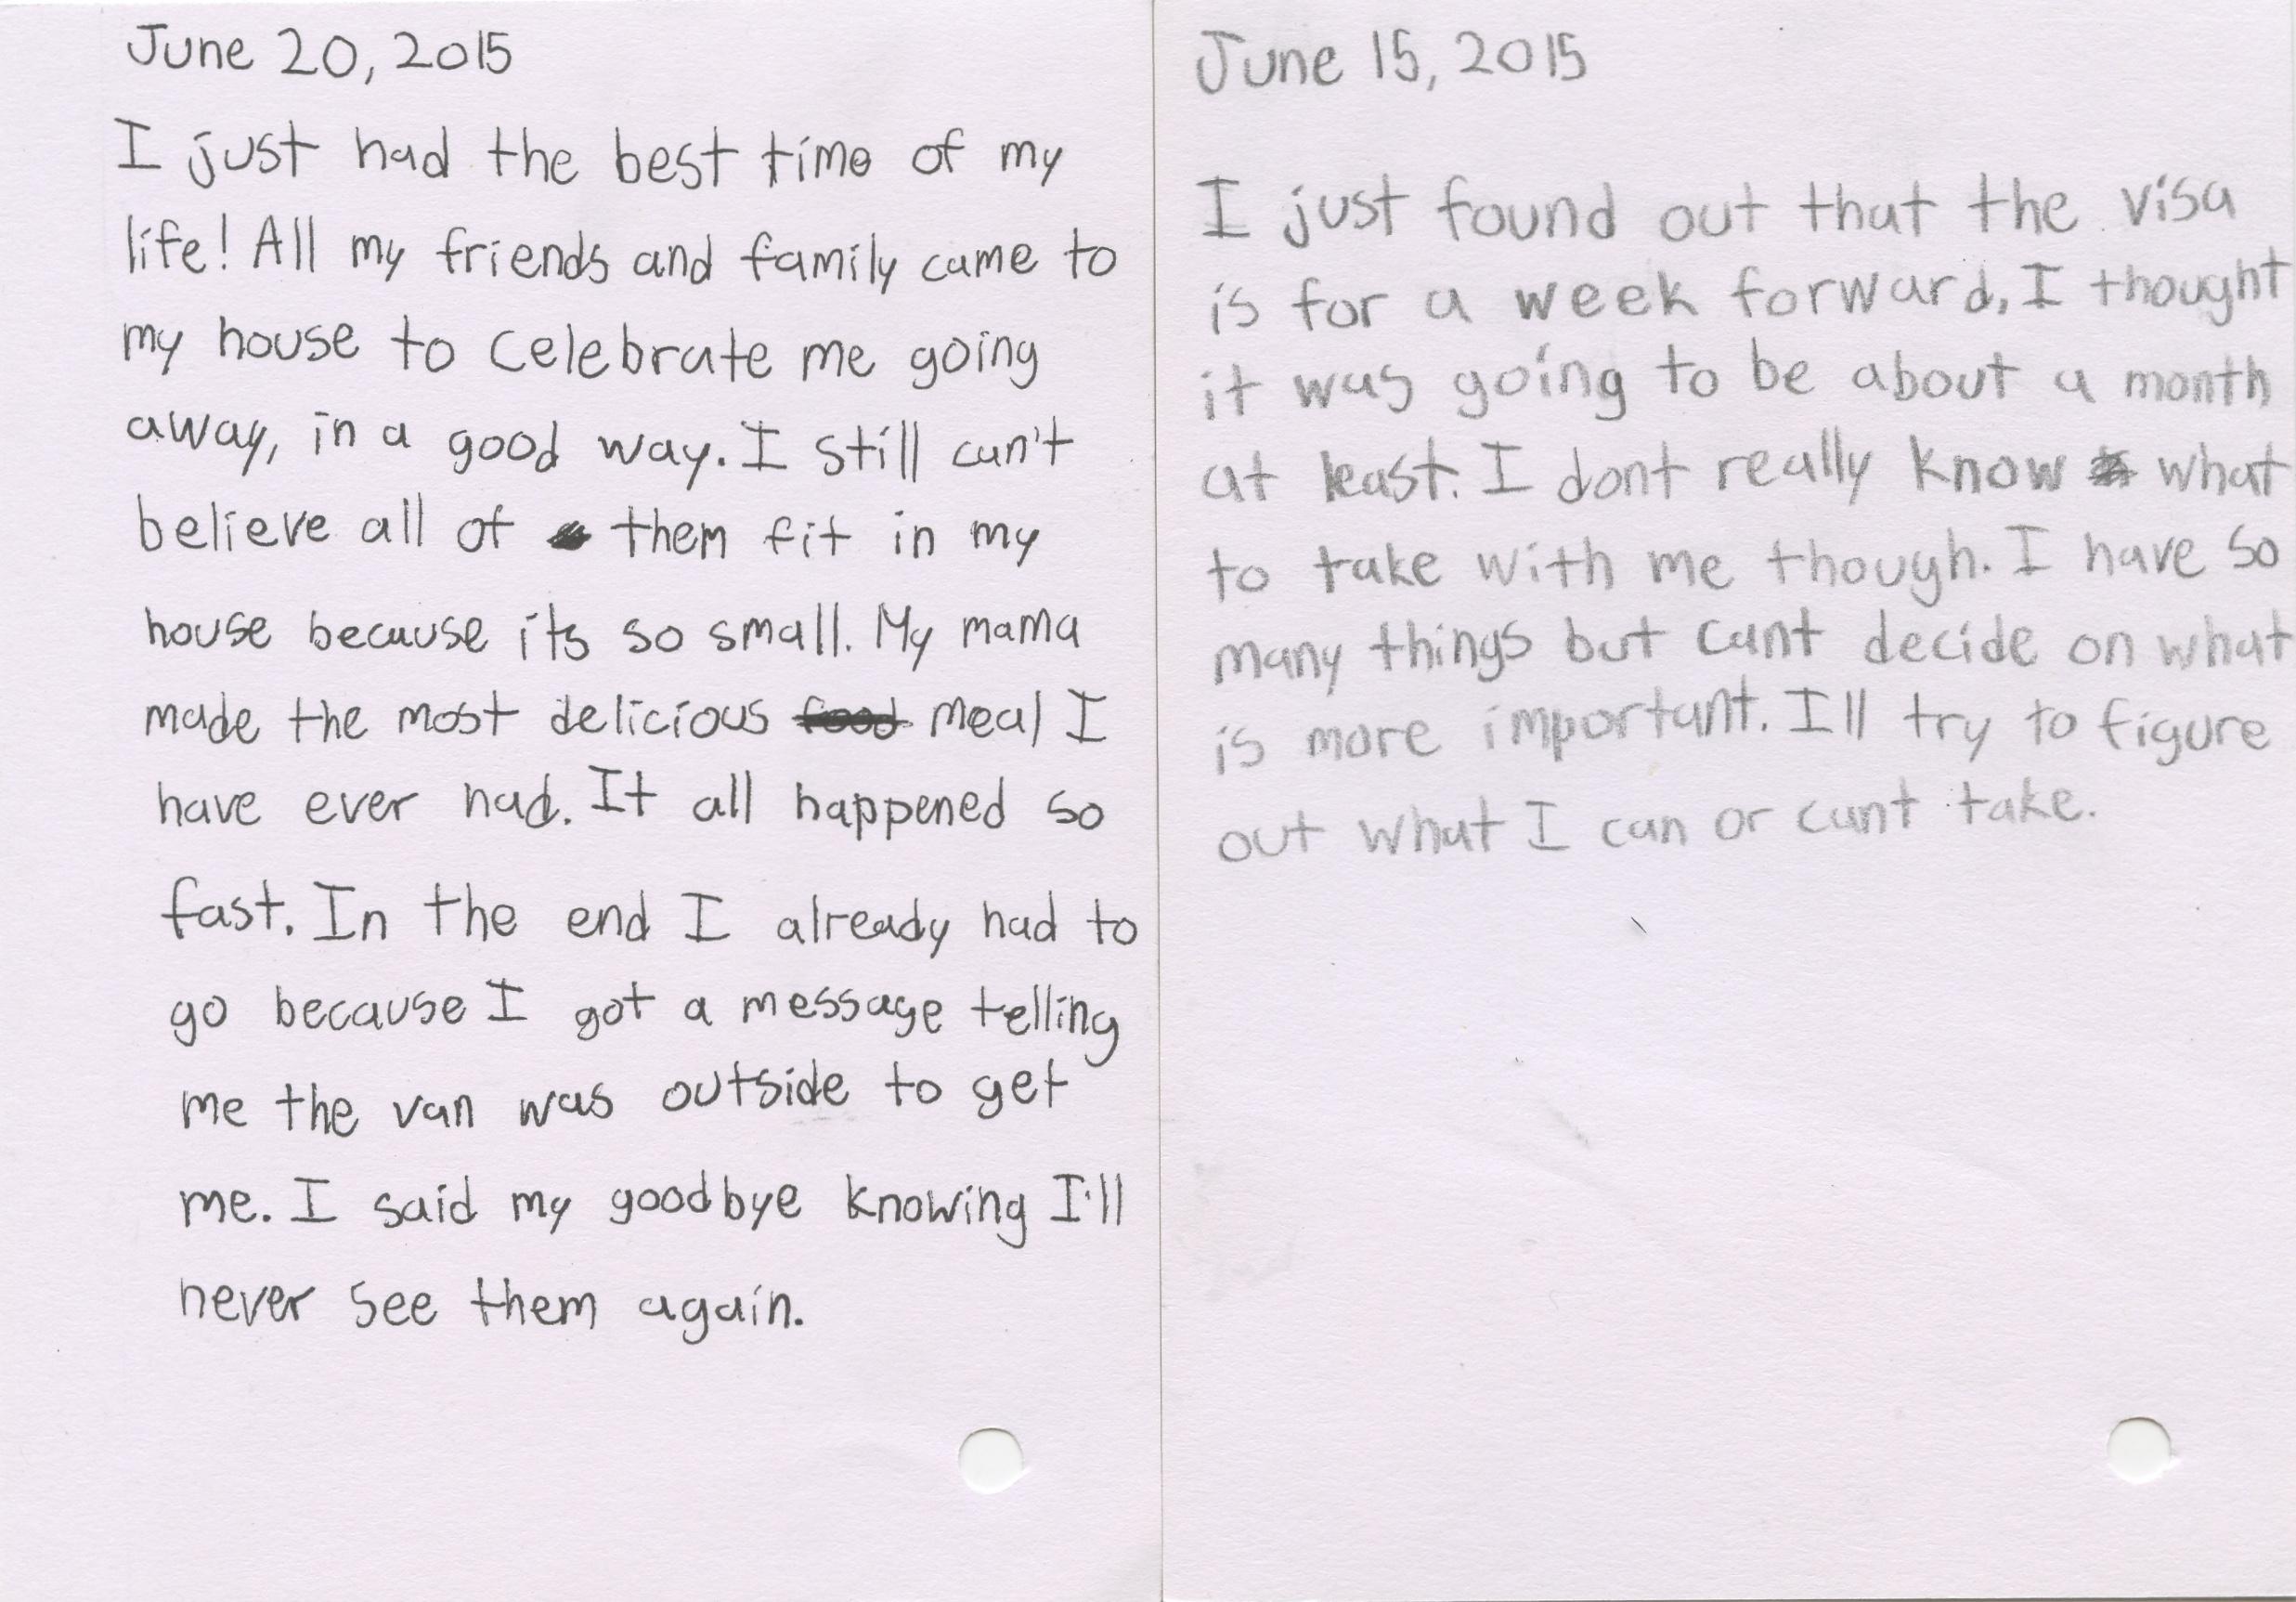 June 20, 2015
I just had the best time of my
life! All my friends and family came to
my house to celebrate me going
away, in a good way. I still can't
believe all of them fit in my
house because its so small. My mama
made the most delicious food meal I
have ever had. It all happened so
fast. In the end I already had to
go because I got a message telling
me the van was outside to get
me. I said my goodbye knowing I'll
never see them again.
June 15, 2015
I just found out that the visa
is for a week forward, I thought
it was going to be about a month
at least. I dont really know what
to take with me though. I have so
many things but cant decide on what
is more important. I'll try to figure
out what I can or cant take.